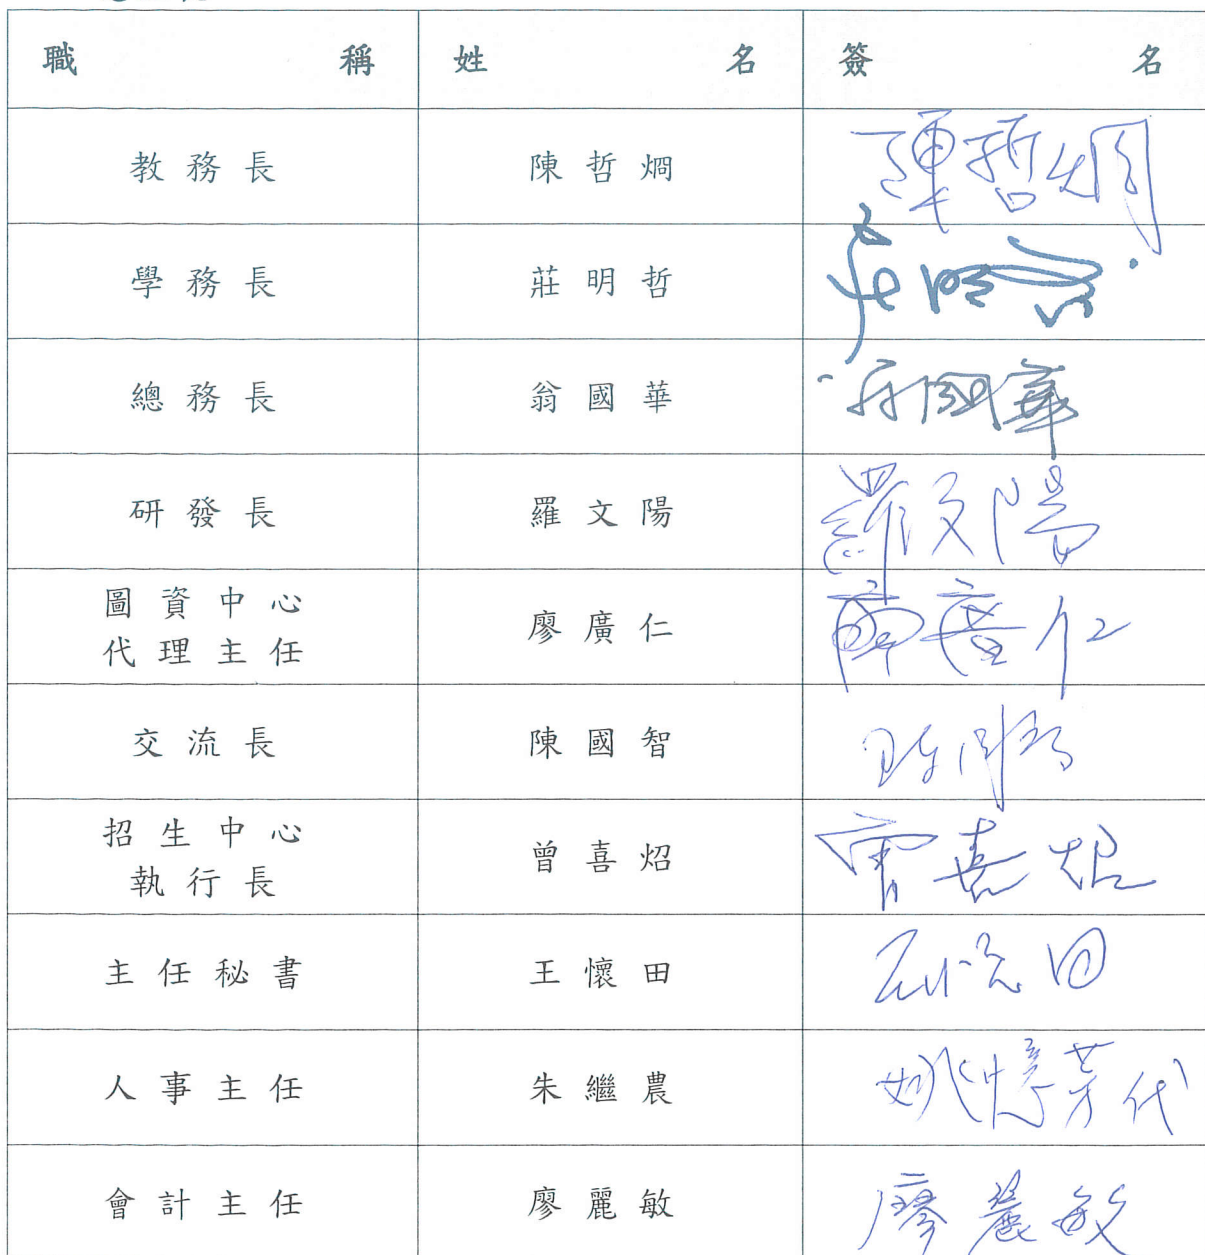 職稱 姓名 簽名
教務長 陳哲烱 陳哲烱
學務長 莊明哲 莊明哲
總務長 翁國華 翁國華
研發長 羅文陽 羅文陽
圖資中心
代理主任 廖廣仁 廖廣仁
交流長 陳國智 陳國智
招生中心
執行長 曾喜炤 曾喜炤
主任秘書 王懷田 王懷田
人事主任 朱繼農 代
會計主任 廖麗敏 廖麗敏